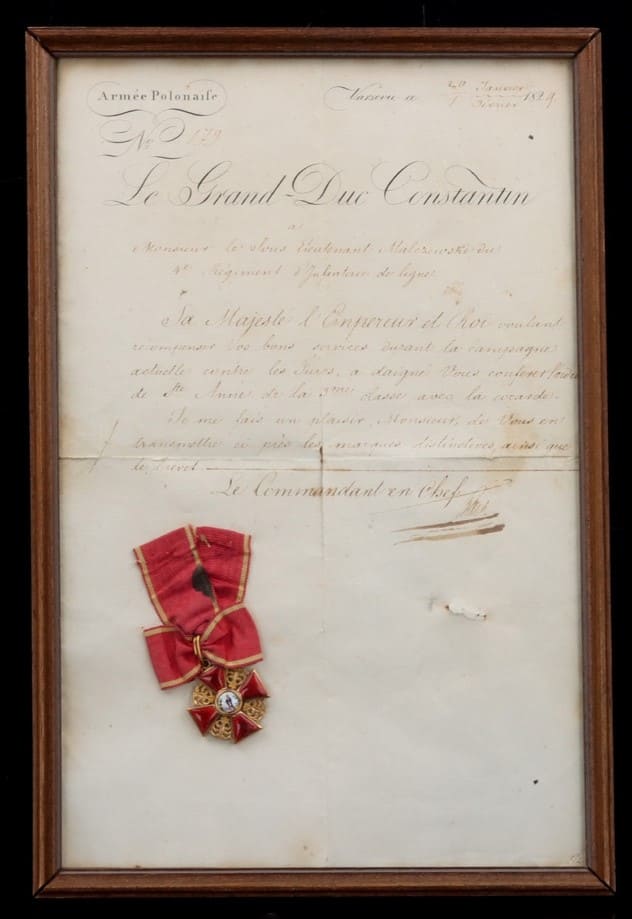 Armée Polonaise
Varsovie a 20 Janvier 1 Fevrier 1829.
No 179
Le Grand-Duc Constantin
a
Monsieur le Sous Lieutenant Malczewski du
4e Régiment d'Infanterie de ligne
Sa Majesté l'Empereur et Roi voulant
récompenser vos bons services durant la campagne
actuelle contre les Turcs, a daigné Vous conferer l'ordre
de Ste Anne de la 3me classe avec la cocarde.
Je me fais un plaisir, Monsieur, de Vous en
transmettre ci près les marques distinctives ainsi que
le brevet
Le Commandant en Chef